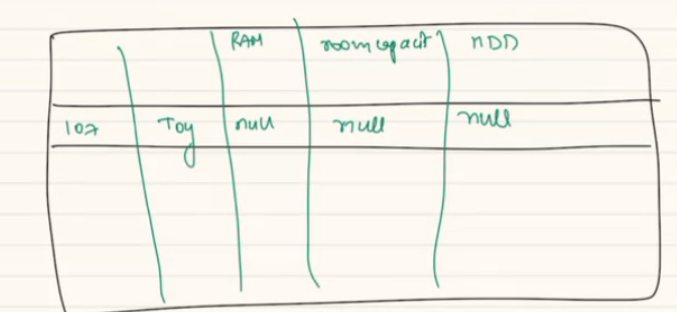 RAM room capacit HDD
107 Toy null null null